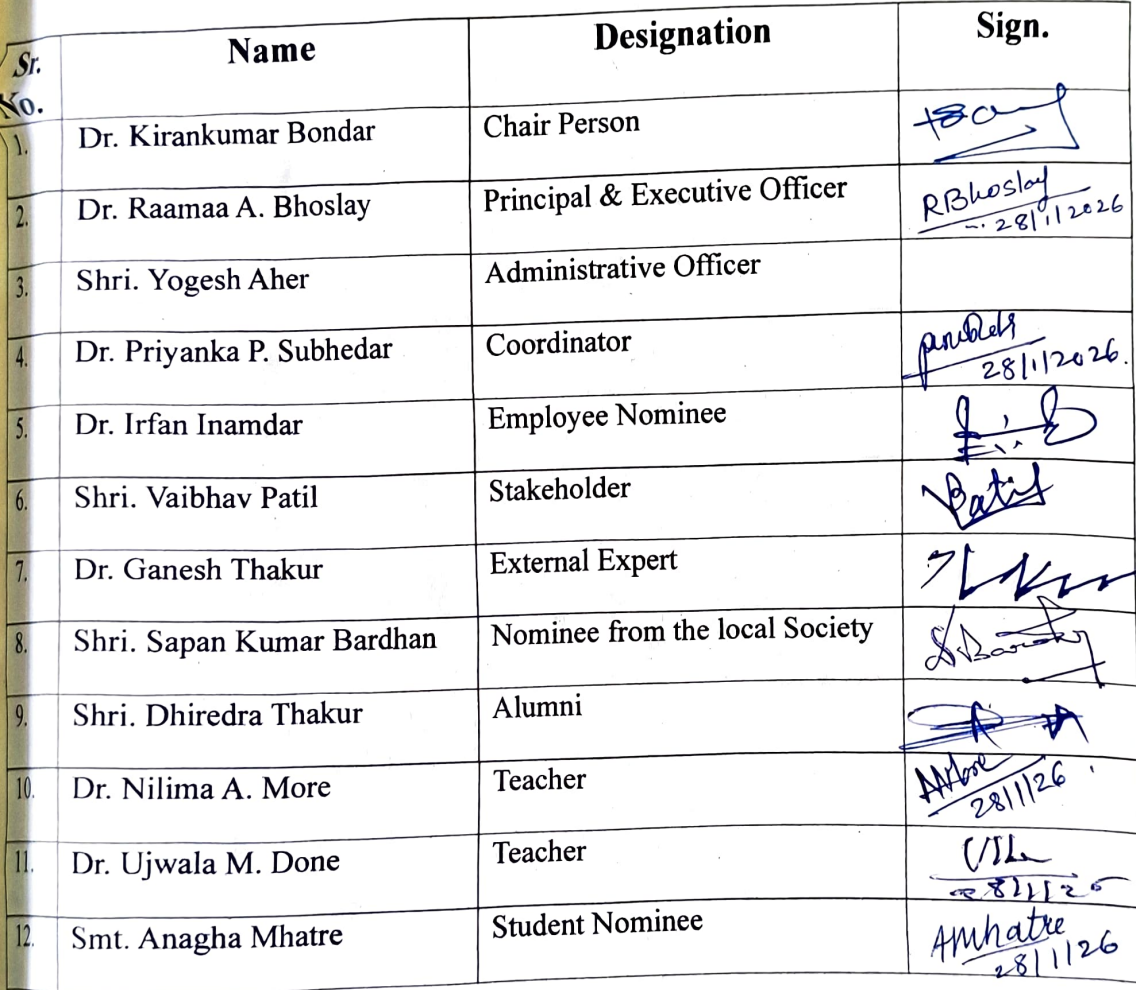 Sr. No. Name Designation Sign.
1. Dr. Kirankumar Bondar Chair Person
2. Dr. Raamaa A. Bhoslay Principal & Executive Officer RBhoslay
28/1/2026
3. Shri. Yogesh Aher Administrative Officer
4. Dr. Priyanka P. Subhedar Coordinator
28/1/2026.
5. Dr. Irfan Inamdar Employee Nominee
6. Shri. Vaibhav Patil Stakeholder Patil
7. Dr. Ganesh Thakur External Expert
8. Shri. Sapan Kumar Bardhan Nominee from the local Society
9. Shri. Dhiredra Thakur Alumni
10. Dr. Nilima A. More Teacher AMore
28/1/26
11. Dr. Ujwala M. Done Teacher
12. Smt. Anagha Mhatre Student Nominee AMhatre
28/1/26